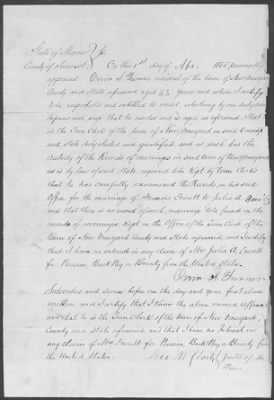 State of Maine } ss
County of Somerset } On this 1st day of Apr. 1865 personally
appeared Orrin S. resident of the town of New Vineyard
County and State aforesaid aged 43 years and whom I certify
to be respectable and entitled to credit who being by me duly sworn
deposes and says that he resides and is aged as aforesaid. That
is the Town Clerk of the town of New Vineyard in said County
and State duly elected and qualified, and as such has the
Custody of the Records of marriages in said town of New Vineyard
as is by law of said State required to be kept by Town Clerks
that he has carefully examined the Records in his said
Office for the marriage of Everett to Julia A.
and that there is no record of such marriage to be found in the
records of marriages kept in the Office of the Town Clerk of the
town of New Vineyard County and State aforesaid, and I certify
that I have no interest in any claim of Mrs Julia A. Everett for
Pension, Back Pay or Bounty from the United States.
Orrin S.
Subscribed and sworn before me the day and year first above
written and I certify that I know the above named Affiant
and that he is the Town Clerk of the town of New Vineyard,
County and State aforesaid and that I have no interest in
any claim of Mrs Everett for Pension, Back Pay or Bounty from
the United States. Justice of the
Peace.